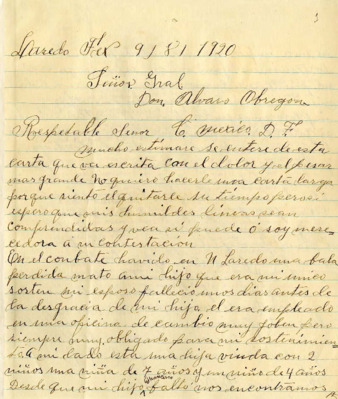 Laredo Tex 9/8/1920
Señor Gral
Don Alvaro Obregon
Respetable señor C. Mexico D. F.
mucho estimare se entere de esta
carta que va escrita con el dolor y el pesar
mas grande No quiero hacerle una carta larga
porque siento el quitarle su tiempo pero si
espero que mis humildes lineas sean
comprendidas y vea si puede ó soy mere-
cedora á su contestación
En el conbate havido en N Laredo una bala
perdida mato a mi hijo que era mi unico
sosten mi esposo fallecio unos dias antes de
la desgracia de mi hijo, el era empleado
en una oficina de cambio muy joben pero
siempre muy obligado para mi sostenimien
to a mi lado esta una hija viuda con 2
niños una niña de 7 años y un niño de 4 años
Desde que mi hijo falto nos encontramos